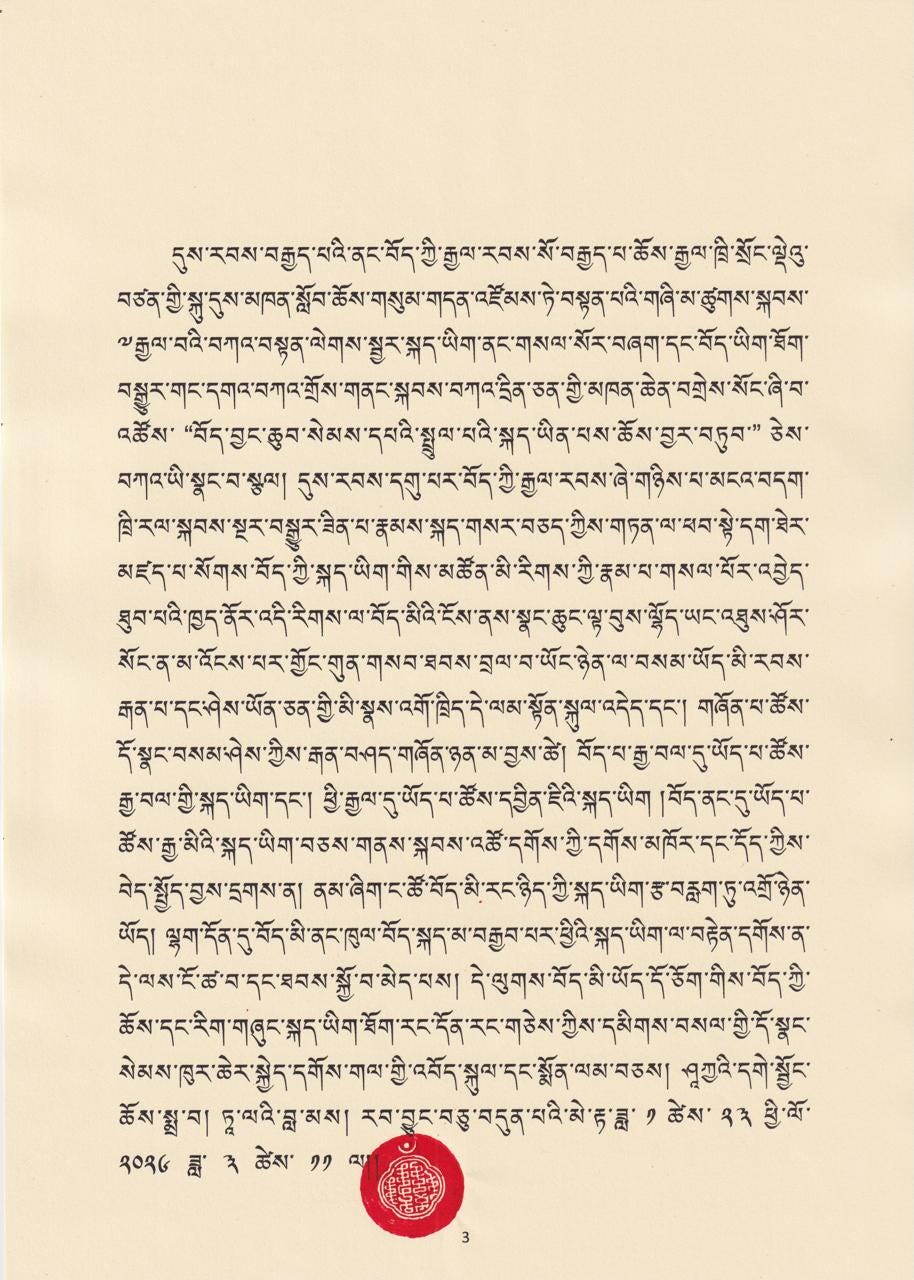 དུས་རབས་བརྒྱད་པའི་ནང་བོད་ཀྱི་རྒྱལ་རབས་སོ་བརྒྱད་པ་ཆོས་རྒྱལ་ཁྲི་སྲོང་ལྡེའུ་
བཙན་གྱི་སྐུ་དུས་མཁན་སློབ་ཆོས་གསུམ་གདན་འཛོམས་ཏེ་བསྟན་པའི་གཞི་མ་ཚུགས་སྐབས་
༧རྒྱལ་བའི་བཀའ་བསྟན་ལེགས་སྦྱར་སྐད་ཡིག་ནང་གསལ་སོར་བཞག་དང་བོད་ཡིག་ཐོག་
བསྒྱུར་གང་དགའ་བཀའ་གྲོས་གནང་སྐབས་བཀའ་དྲིན་ཅན་གྱི་མཁན་ཆེན་བགྲེས་སོང་ཞི་བ་
འཚོས་ “བོད་བྱང་ཆུབ་སེམས་དཔའི་སྤྲུལ་པའི་སྐད་ཡིན་པས་ཆོས་བྱར་བཏུབ་” ཅེས་
བཀའ་ཡི་སྣང་བ་སྩལ། དུས་རབས་དགུ་པར་བོད་ཀྱི་རྒྱལ་རབས་ཞེ་གཉིས་པ་མངའ་བདག་
ཁྲི་རལ་སྐབས་སྔར་བསྒྱུར་ཟིན་པ་རྣམས་སྐད་གསར་བཅད་ཀྱིས་གཏན་ལ་ཕབ་སྟེ་དག་ཐེར་
མཛད་པ་སོགས་བོད་ཀྱི་སྐད་ཡིག་གིས་མཚོན་མི་རིགས་ཀྱི་རྣམ་པ་གསལ་པོར་འབྱེད་
ཐུབ་པའི་ཁྱད་ནོར་འདི་རིགས་ལ་བོད་མིའི་ངོས་ནས་སྣང་ཆུང་ལྟ་བུས་ལྷོད་ཡང་འཐུས་ཤོར་
སོང་ན་མ་འོངས་པར་གྱོང་གུན་གསབ་ཐབས་བྲལ་བ་ཡོང་ཉེན་ལ་བསམ་ཡོད་མི་རབས་
རྒན་པ་དང་ཤེས་ཡོན་ཅན་གྱི་མི་སྣས་འགོ་ཁྲིད་དེ་ལམ་སྟོན་སྐུལ་འདེད་དང་། གཞོན་པ་ཚོས་
དོ་སྣང་བསམ་ཤེས་ཀྱིས་རྒན་བཤད་གཞོན་ཉན་མ་བྱས་ཚེ། བོད་པ་རྒྱ་བལ་དུ་ཡོད་པ་ཚོས་
རྒྱ་བལ་གྱི་སྐད་ཡིག་དང་། ཕྱི་རྒྱལ་དུ་ཡོད་པ་ཚོས་དབྱིན་ཇིའི་སྐད་ཡིག །བོད་ནང་དུ་ཡོད་པ་
ཚོས་རྒྱ་མིའི་སྐད་ཡིག་བཅས་གནས་སྐབས་འཚོ་དགོས་ཀྱི་དགོས་མཁོར་དང་དོད་ཀྱིས་
བེད་སྤྱོད་བྱས་དྲགས་ན། ནམ་ཞིག་ང་ཚོ་བོད་མི་རང་ཉིད་ཀྱི་སྐད་ཡིག་རྩ་བརླག་ཏུ་འགྲོ་ཉེན་
ཡོད། ལྷག་དོན་དུ་བོད་མི་ནང་ཁུལ་བོད་སྐད་མ་བརྒྱབ་པར་ཕྱིའི་སྐད་ཡིག་ལ་བརྟེན་དགོས་ན་
དེ་ལས་ངོ་ཚ་བ་དང་ཐབས་སྐྱོ་བ་མེད་པས། དེ་ལུགས་བོད་མི་ཡོད་དོ་ཅོག་གིས་བོད་ཀྱི་
ཆོས་དང་རིག་གཞུང་སྐད་ཡིག་ཐོག་རང་དོན་རང་གཅེས་ཀྱིས་དམིགས་བསལ་གྱི་དོ་སྣང་
སེམས་ཁུར་ཆེར་སྐྱེད་དགོས་གལ་གྱི་འབོད་སྐུལ་དང་སྨོན་ལམ་བཅས། ཤཱཀྱའི་དགེ་སྦྱོང་
ཆོས་སྨྲ་བ། ཏཱ་ལའི་བླ་མས། རབ་བྱུང་བཅུ་བདུན་པའི་མེ་རྟ་ཟླ་ ༡ ཚེས་ ༢༣ ཕྱི་ལོ་
༢༠༢༦ ཟླ་ ༣ ཚེས་ ༡༡ ལ།།
3